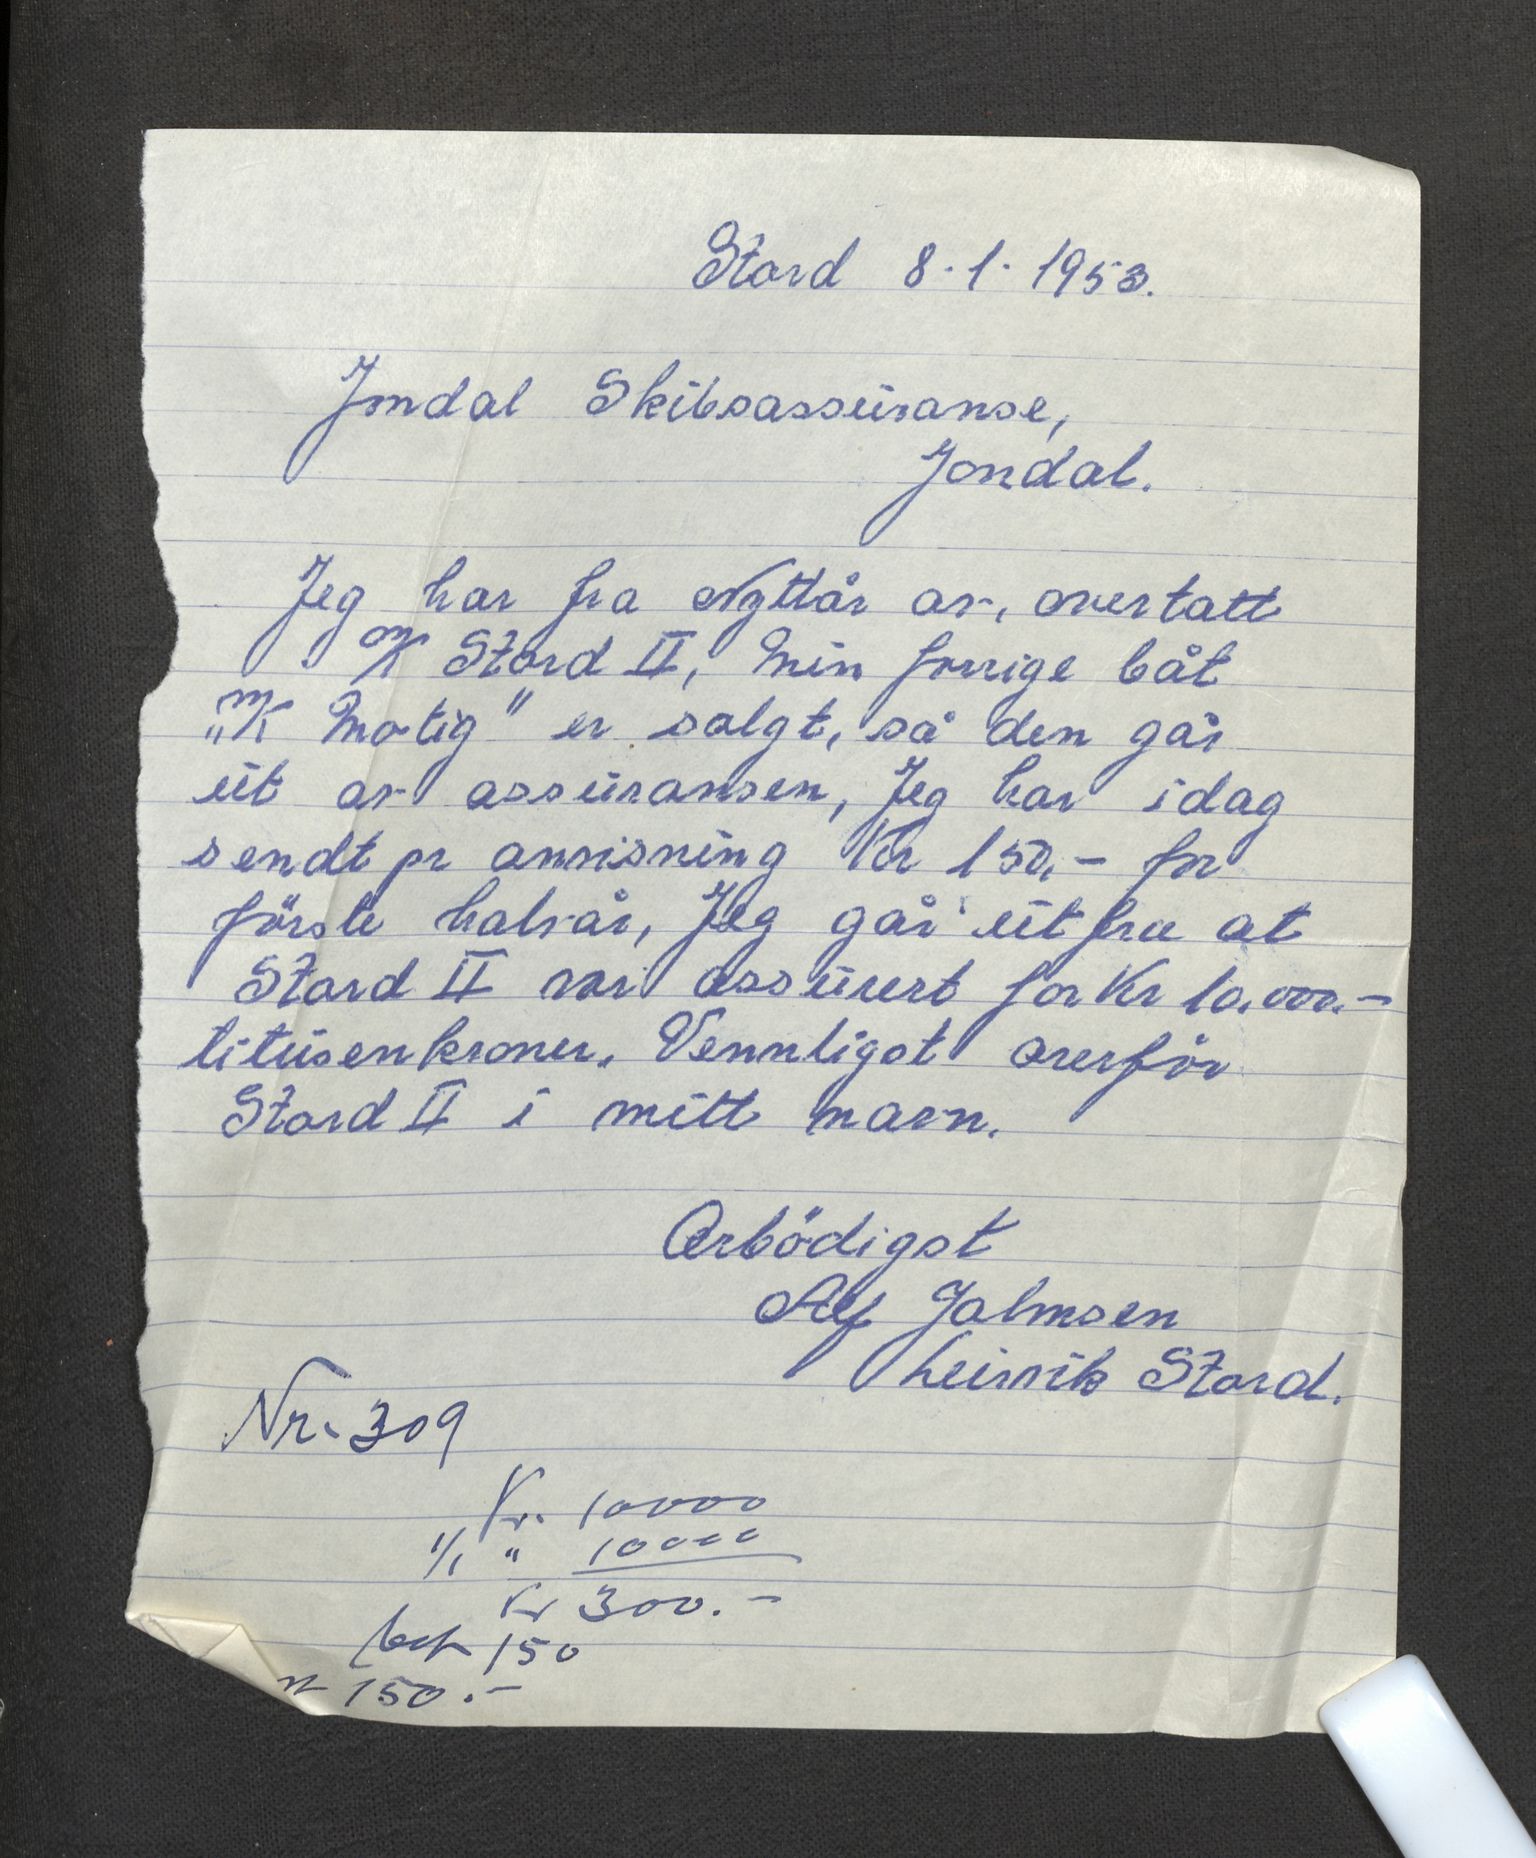 Stord 8.1.1953.
Jondal Skibsassuranse,
Jondal.
Jeg har fra Nyttår av, overtatt
M/K Stord II, Min forrige båt
"M/K Modig" er solgt, så den går
ut av assuransen, Jeg har idag
sendt pr anvisning Kr 150,- for
förste halvår, Jeg går ut fra at
Stord II var assurert for Kr 10.000.-
titusenkroner. Vennligst overför
Stord II i mitt navn.
Ærbödigst
Alf Jalmsen
Leirvik Stord.
Nr. 309
Kr. 10000
1/1 " 10000
Kr 300.-
150
150.-